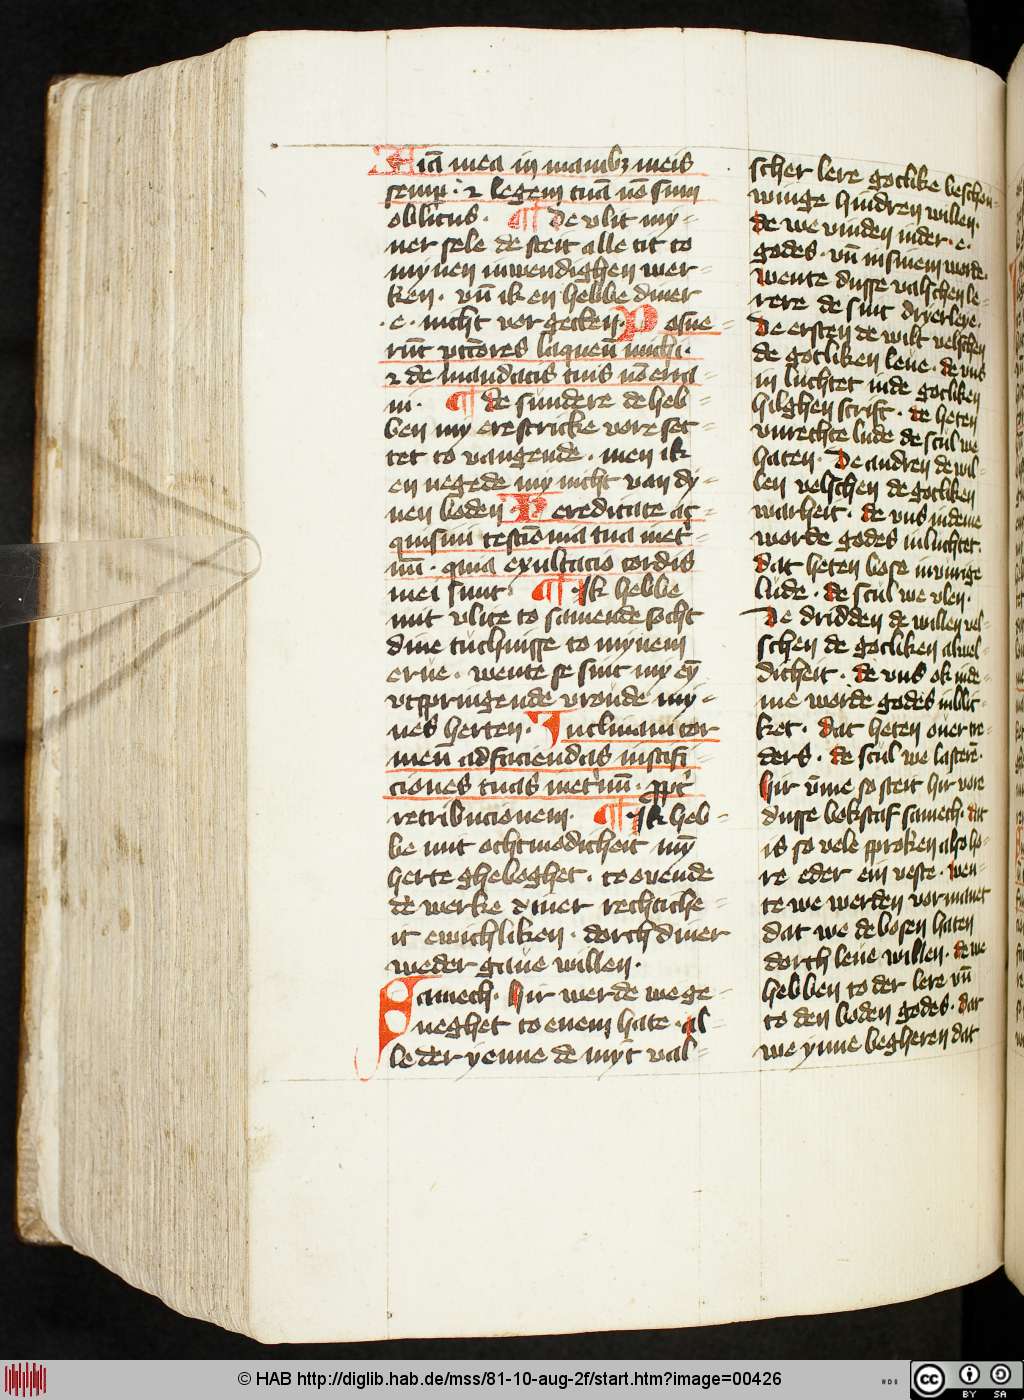 Aīa mea in manibꝫ meis
semp̲ · ⁊ legem tuā nō sum
oblitus · ¶ De vlit my-
ner sele de steit alle tit to
mynen inwendighen wer-
ken · vn̄ ik en hebbe diner
· e · nicht vorgeten · Posue-
rūt pctōres laqueū michi ·
⁊ de mandatis tuis nō erra-
ui · ¶ de sundere de heb-
ben my ere stricke vore set-
tet to vangende · men ik
en negede my nicht van dy-
nen boden · Hereditate ac-
quisiui testīōnia tua in et̄-
nū · quia exultacio cordis
mei sunt · ¶ Ik hebbe
mit vlite to samende socht
dine tuchnisse to mynem
erue · wente se sint my eȳ
vtspringende vroude my-
nes herten · Inclinaui cor
meū ad faciendas iustifi-
ciones tuas in et̄nū · ꝓpt̄
retribucionem · ¶ Ik heb-
be mit othmodicheit mȳ
herte gheboghet · to ouende
de werke diner rechtiche-
it ewichliken · dorch diner
weder gaue willen ·
Samech · hir werde we ge-
neghet to enem hate · al-
le der yenne de myt val-
scher lere gotlike beschou-
winge hindren willen ·
de we vinden in der · e ·
godes · vn̄ in sinem worde ·
wente dusse valschen le-
rere de sint drierleye ·
De ersten de wilt velschen
de gotliken leue · de vns
in luchtet in de gotliken
hilghen scrift · de heten
vnrechte lude de scul we
haten · De andren de wil-
len velschen de gotliken
warheit · de vns in deme
worde godes inluchtet ·
dat heten bose in vurige
lude · de scul we vlen ·
De dridden de willen vel-
schen de gotliken alwel-
dicheit · de vns ok in de-
me worde godes inblic-
ket · dat heten ouer tre-
ders · de scul we lasterē ·
hir vm̄e so steit hir vore
dusse bokstaf samech · dat
is so vele sproken also ho-
re eder ein veste · wen-
te we werden vormanet
dat we de bosen haten
dorch leue willen · de we
hebben to der lere vn̄
to den boden godes · dar
we ynne begheren dat
© HAB http://diglib.hab.de/mss/81-10-aug-2f/start.htm?image=00426
cc BY SA